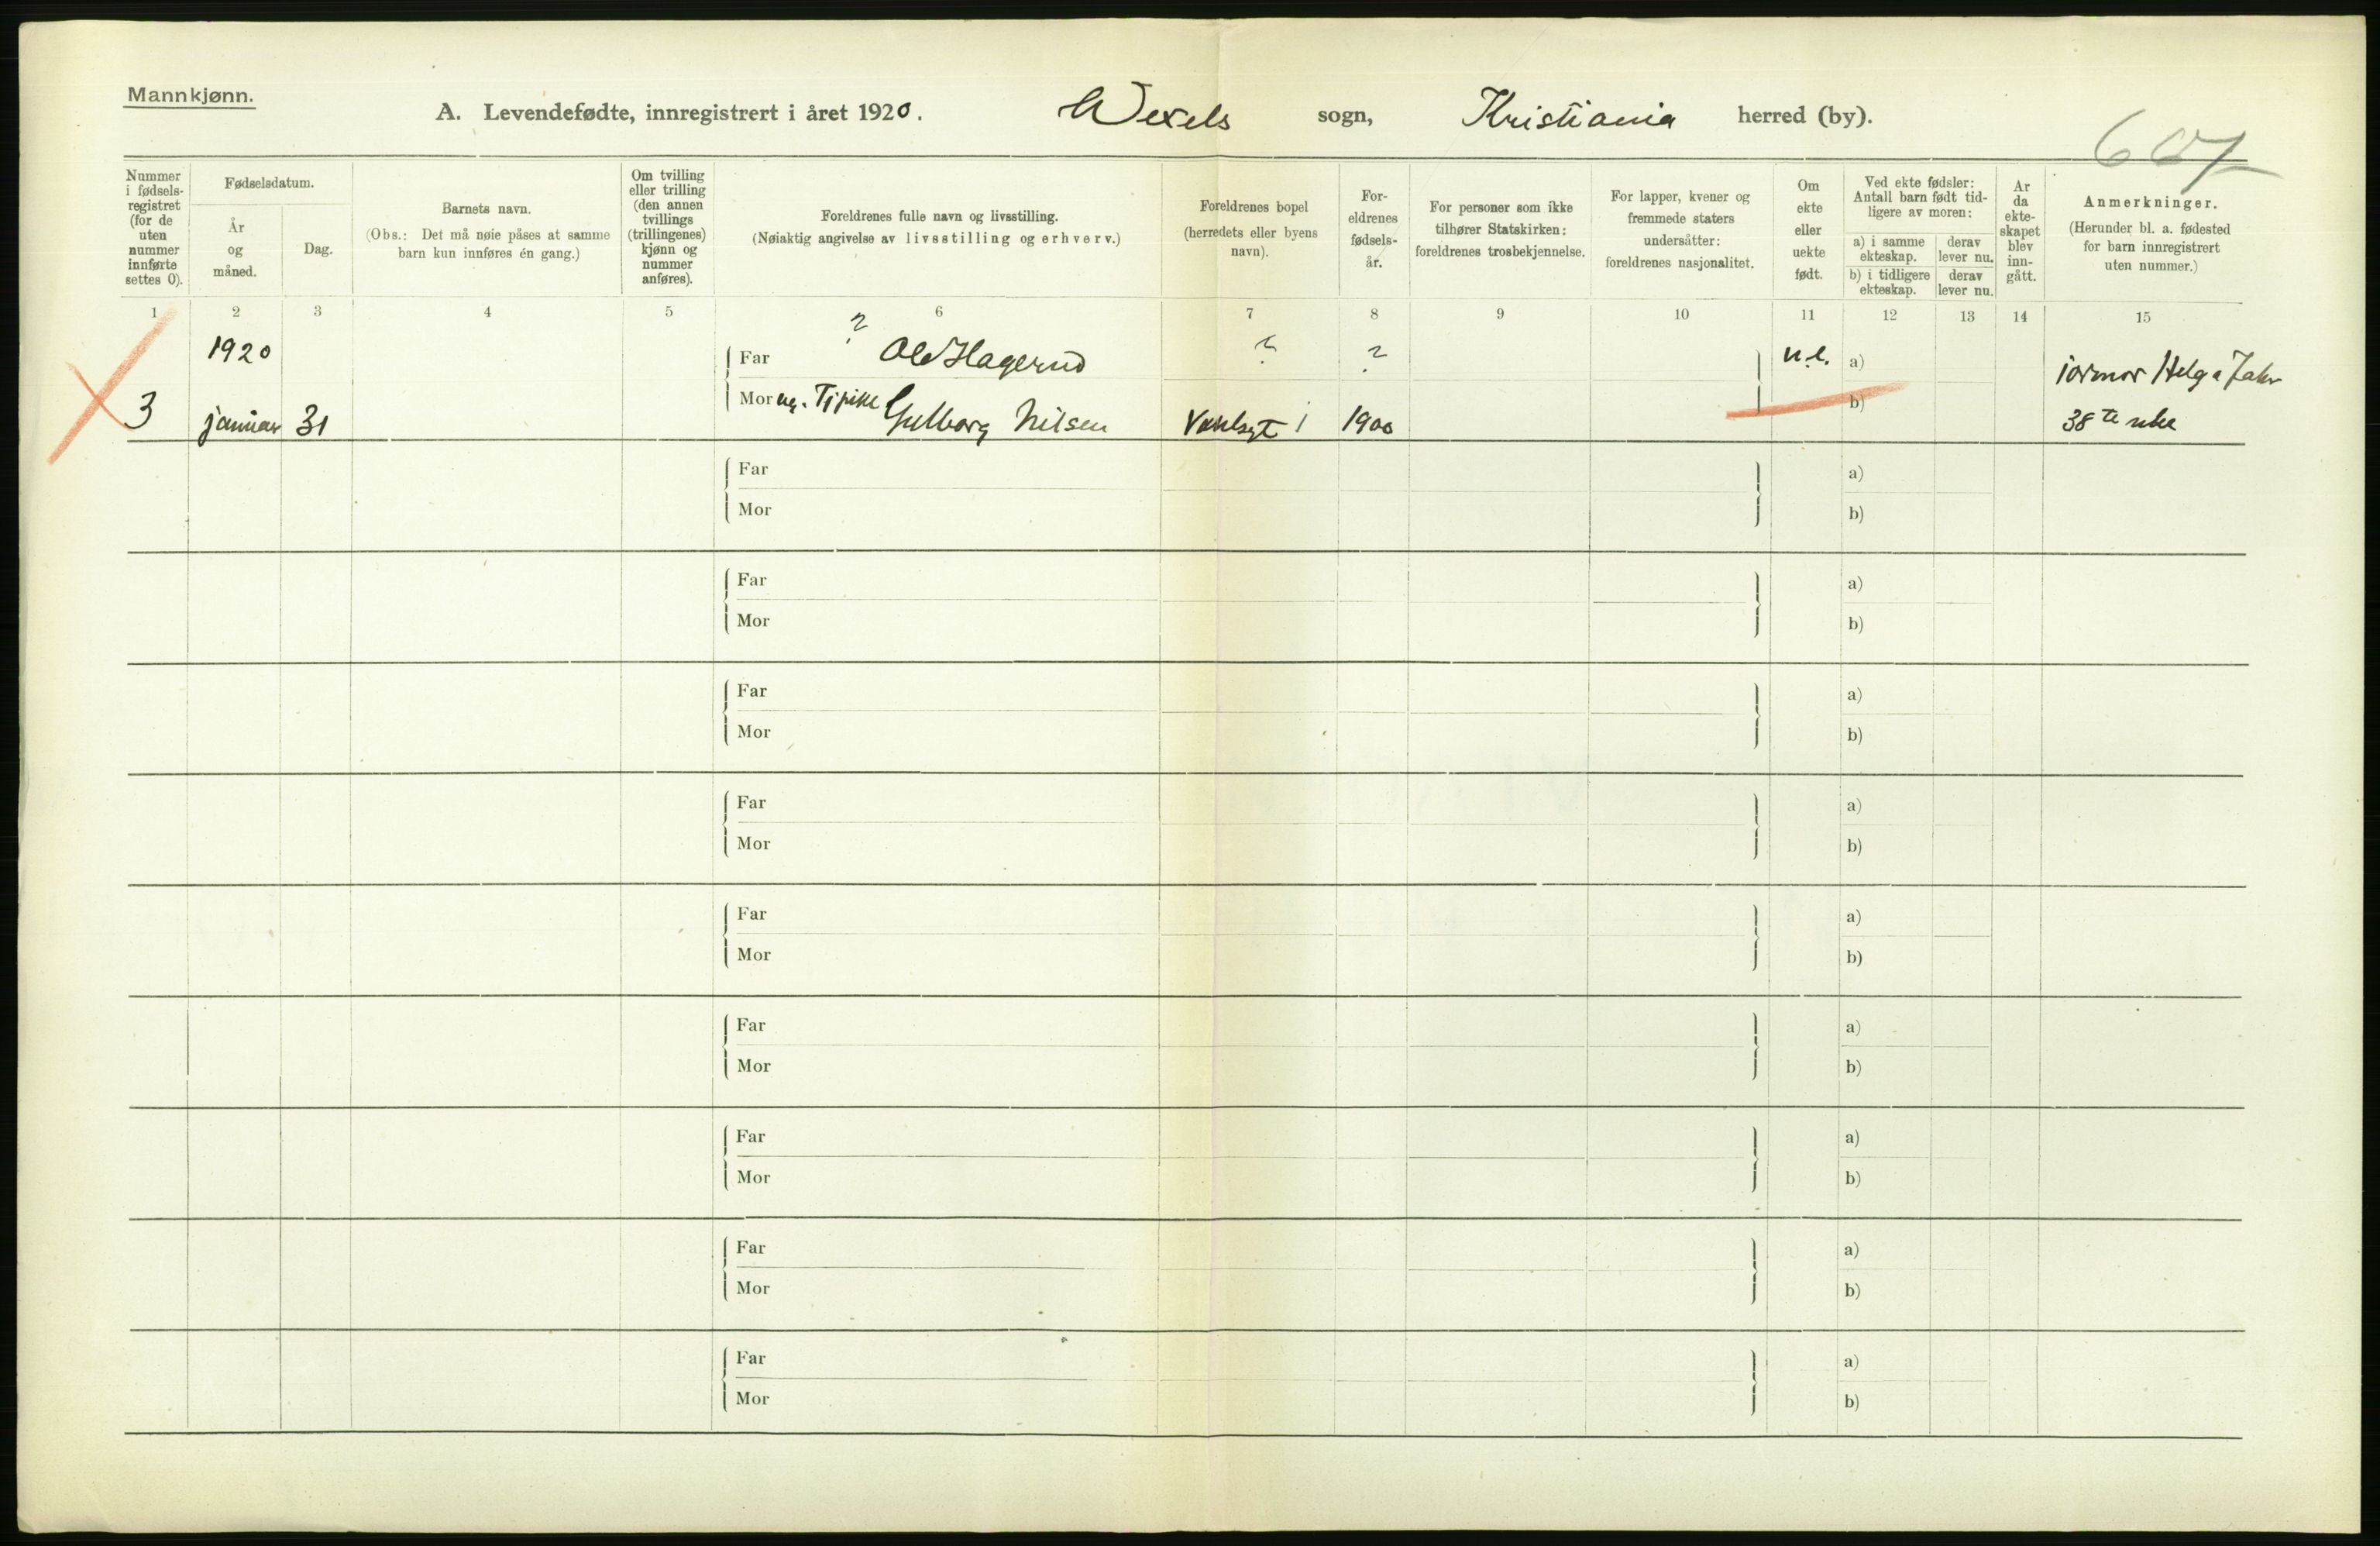 Mannkjønn.
A. Levendefødte, innregistrert i året 1920. Wexels sogn, Kristiania herred (by).
607
Nummer i fødsels- registret (for de uten nummer innførte settes 0).
Fødselsdatum.
År og måned.
Dag.
Barnets navn.
(Obs.: Det må nøie påses at samme barn kun innføres én gang.)
Om tvilling eller trilling (den annen tvillings (trillingenes) kjønn og nummer anføres).
Foreldrenes fulle navn og livsstilling.
(Nøiaktig angivelse av livsstilling og erhverv.)
Foreldrenes bopel (herredets eller byens navn).
For- eldrenes fødsels- år.
For personer som ikke tilhører Statskirken: foreldrenes trosbekjennelse.
For lapper, kvener og fremmede staters undersåtter: foreldrenes nasjonalitet.
Om ekte eller uekte født.
Ved ekte fødsler: Antall barn født tid- ligere av moren:
a) i samme ekteskap.
derav lever nu.
b) i tidligere ekteskap.
derav lever nu.
År da ekte- skapet blev inn- gått.
Anmerkninger.
(Herunder bl. a. fødested for barn innregistrert uten nummer.)
1 2 3 4 5 6 7 8 9 10 11 12 13 14 15
1920 Far ? Ole Hagerud ? ? u.e. a) jormor Helga
3 januar 31 Mor ug. Tj.pike Gulborg Nilsen 1900 b) 38te uke
Far a)
Mor b)
Far a)
Mor b)
Far a)
Mor b)
Far a)
Mor b)
Far a)
Mor b)
Far a)
Mor b)
Far a)
Mor b)
Far a)
Mor b)
Far a)
Mor b)